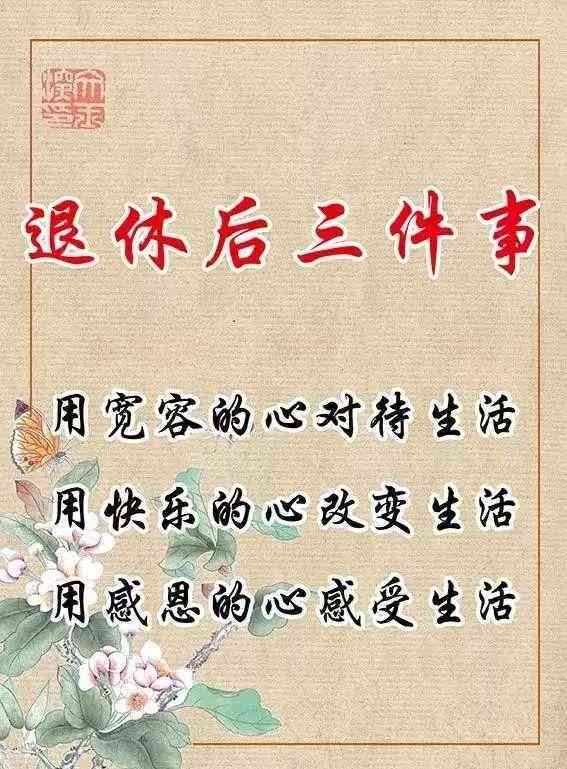 退休后三件事
用宽容的心对待生活
用快乐的心改变生活
用感恩的心感受生活